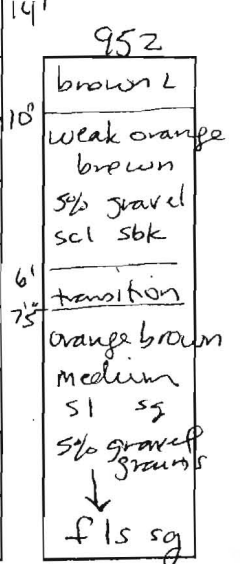 14'
952
brown L
10"
weak orange
brown
5% gravel
scl sbk
6'
transition
7.5'
orange brown
medium
sl sg
5% gravel
grains
↓
f ls sg